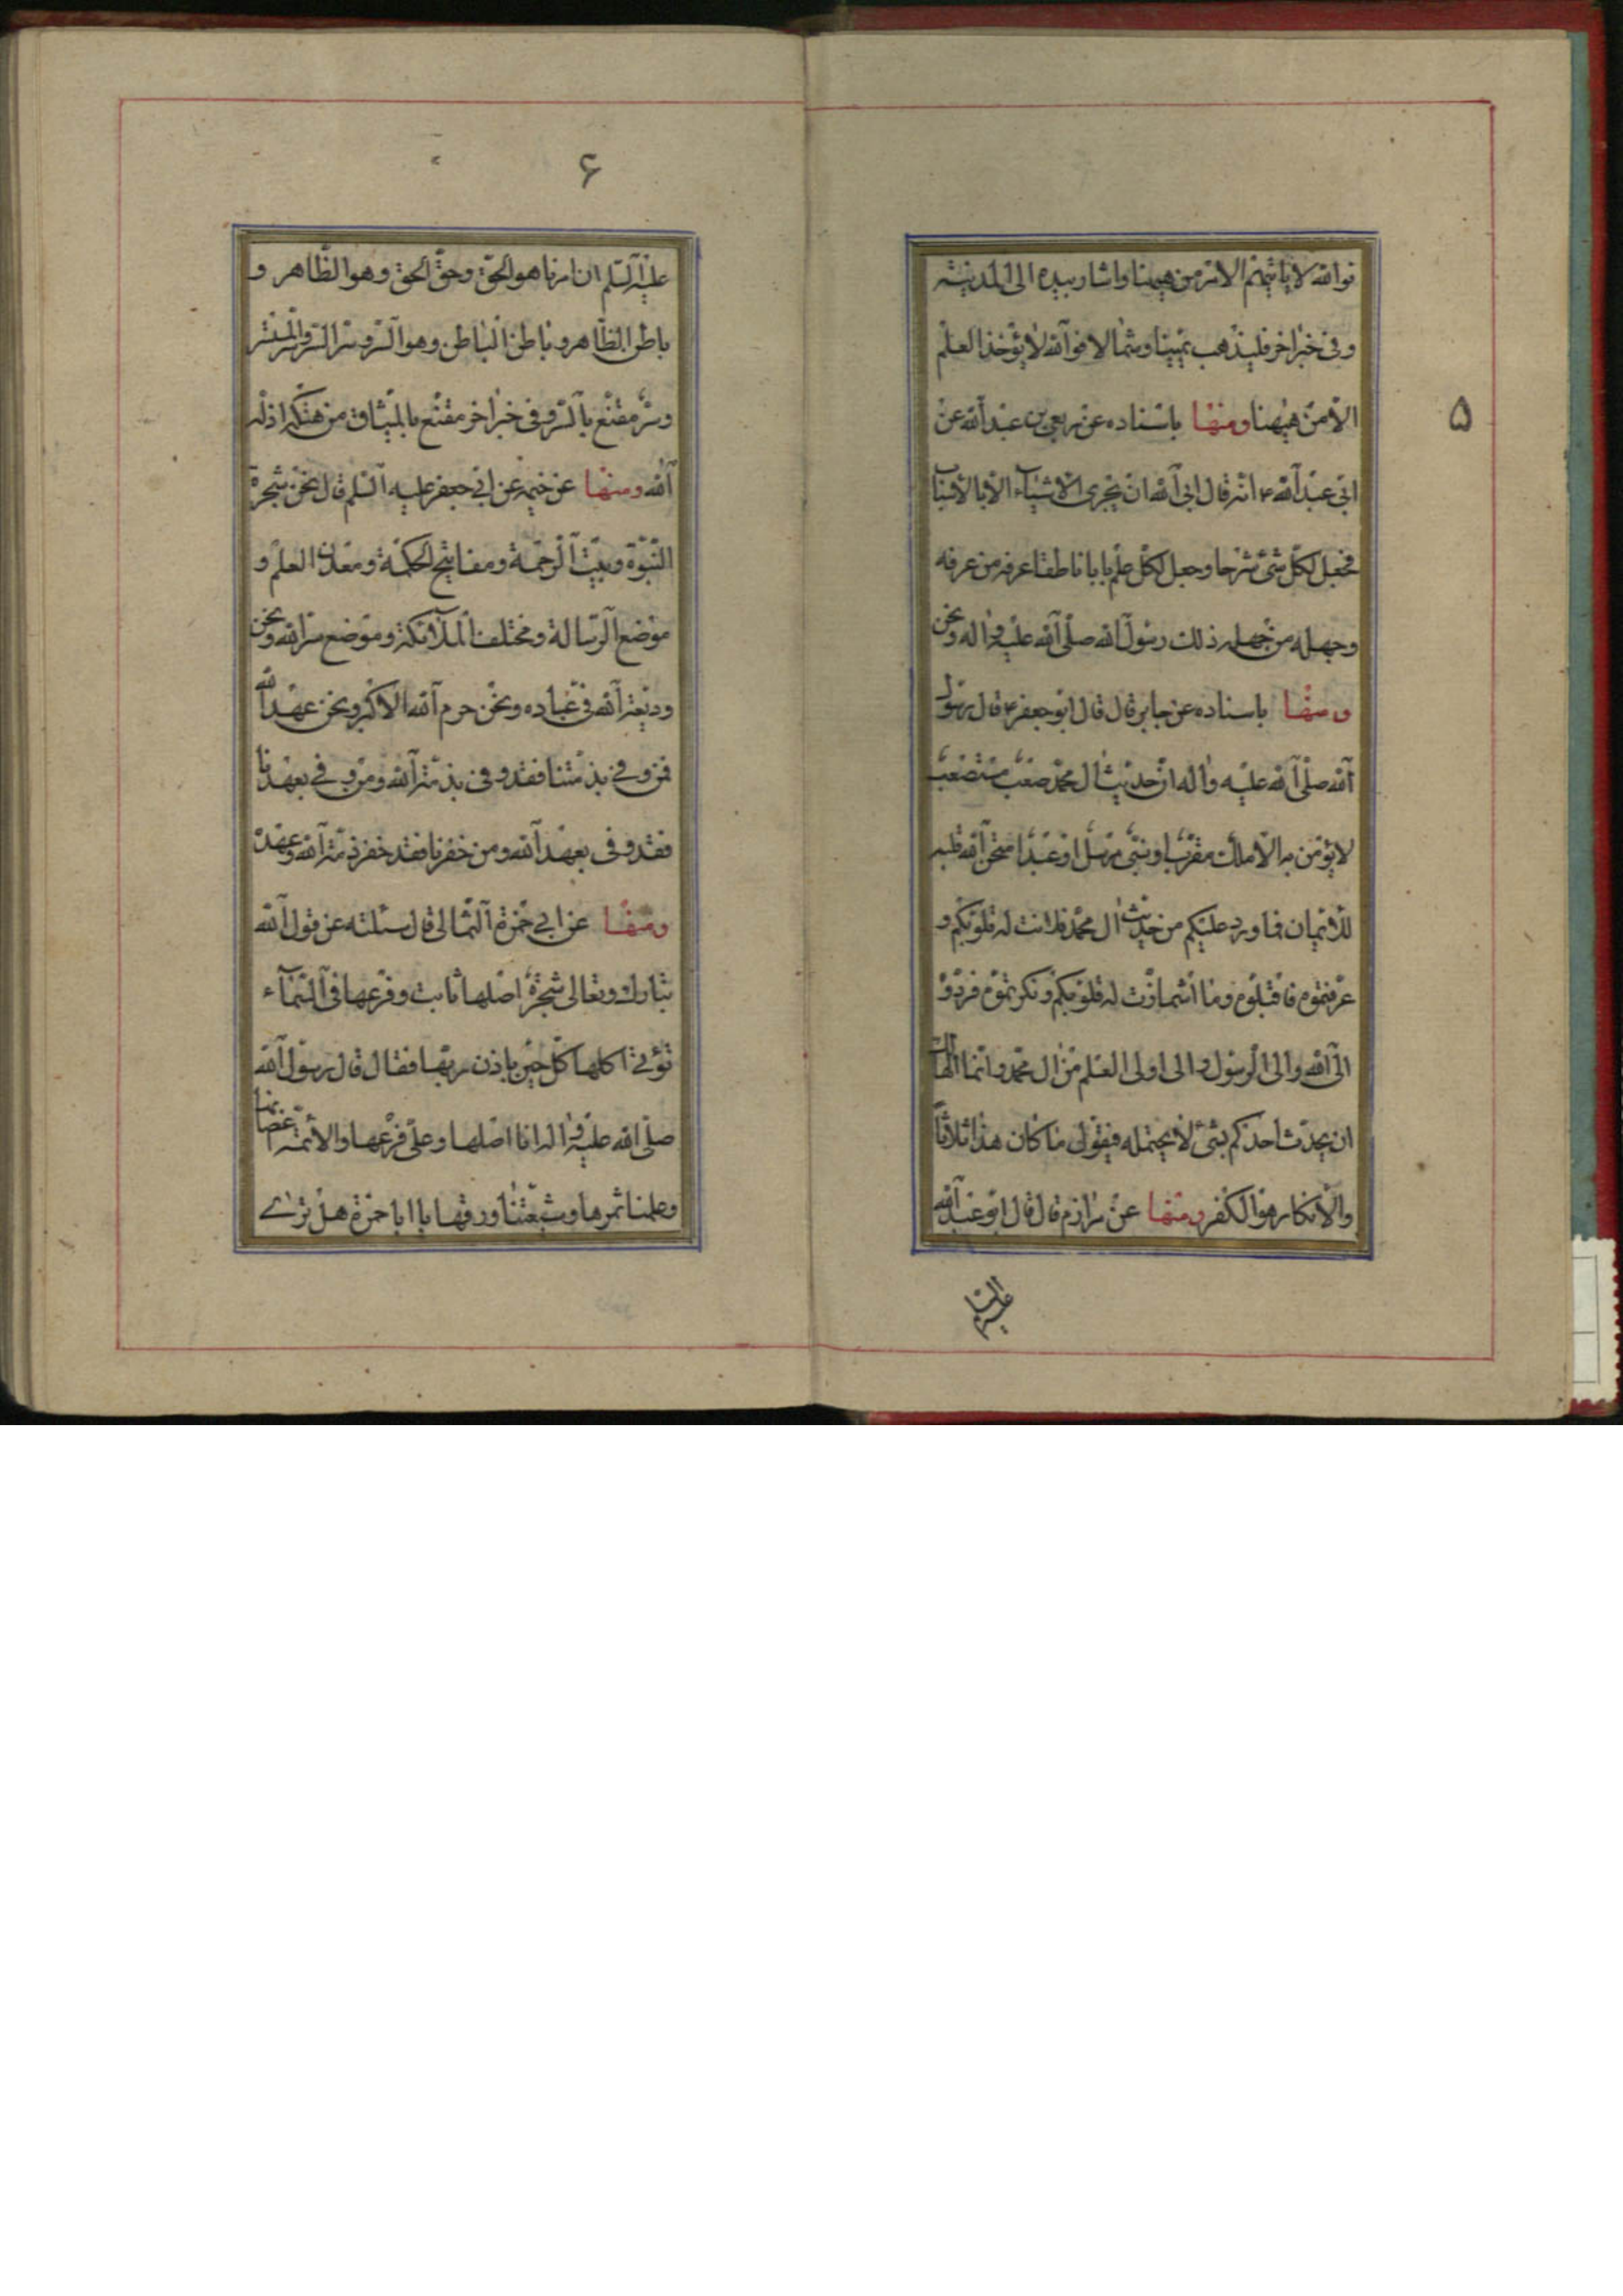 ۵
فوالله لا ياتيهم الامر من هيهنا واشار بيده الى المدينة
وفى خبر اخر فليذهب يمينا وشمالا فوالله لا يؤخذ العلم
الا من هيهنا ومنها باسناده عن ربعى بن عبد الله عن
ابى عبد الله ع انه قال ابى الله ان يجرى الاشياء الا بالاسباب
فجعل لكل شئ شرحا وجعل لكل علم بابا ناطقا عرفه من عرفه
وجهله من جهله ذلك رسول الله صلى الله عليه واله ونحن
ومنها باسناده عن جابر قال قال ابو جعفر ع قال رسول
الله صلى الله عليه واله ان حديث ال محمد صعب مستصعب
لا يؤمن به الا ملك مقرب او نبى مرسل او عبد امتحن الله قلبه
للايمان فما ورد عليكم من حديث ال محمد فلانت له قلوبكم و
عرفتموه فاقبلوه وما اشمازت له قلوبكم ونكرتموه فردوه
الى الله والى الرسول والى اولى العلم من ال محمد وانما الهالك
ان يحدث احدكم بشئ لا يحتمله فيقول ما كان هذا ثلاثا
والانكار هو الكفر ومنها عن مرازم قال قال ابو عبد الله
عليه السلم
۶
عليه السلم ان امرنا هو الحق وحق الحق وهو الظاهر و
باطن الظاهر وباطن الباطن وهو السر وسر السر وسر المستسر
وسر مقنع بالسر وفى خبر اخر مقنع بالميثاق من هتكه اذله
الله ومنها عن خيثمه عن ابى جعفر عليه السلم قال نحن شجرة
النبوة وبيت الرحمة ومفاتيح الحكمة ومعدن العلم و
موضع الرسالة ومختلف الملائكة وموضع سر الله ونحن
وديعة الله فى عباده ونحن حرم الله الاكبر ونحن عهد الله
فمن وفى بذمتنا فقد وفى بذمة الله ومن وفى بعهدنا
فقد وفى بعهد الله ومن خفرنا فقد خفر ذمة الله وعهده
ومنها عن ابى حمزة الثمالى قال سئلته عن قول الله
تبارك وتعالى شجرة اصلها ثابت وفرعها فى السماء
تؤتى اكلها كل حين باذن ربها فقال قال رسول الله
صلى الله عليه واله انا اصلها وعلى فرعها والائمة اغصانها
وعلمنا ثمرها وشيعتنا ورقها يا ابا حمزة هل ترى